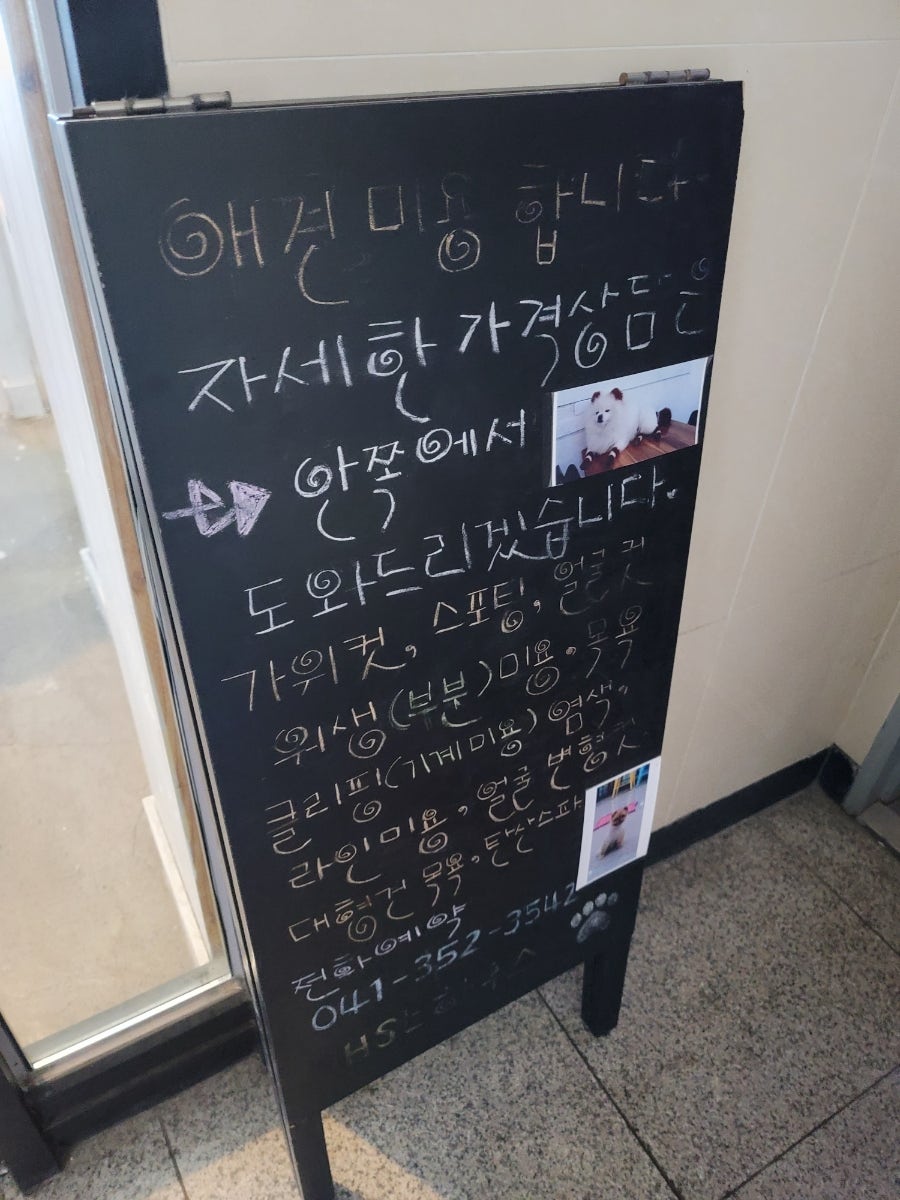 애견 미용 합니다
자세한 가격상담은
안쪽에서
도와드리겠습니다.
가위컷, 스포팅, 얼굴컷
위생(부분)미용, 목욕
클리핑(기계미용) 염색,
라인미용, 얼굴 변형컷
대형견 목욕, 탄산스파
전화예약
041-352-3542